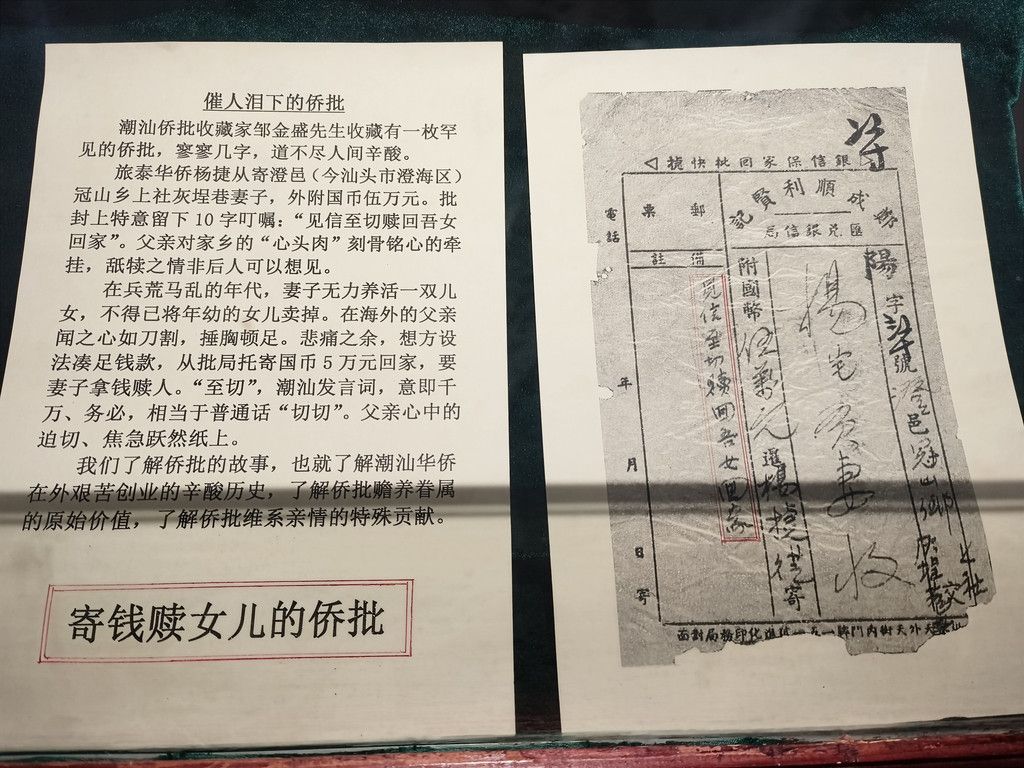 催人泪下的侨批
潮汕侨批收藏家邹金盛先生收藏有一枚罕
见的侨批，寥寥几字，道不尽人间辛酸。
旅泰华侨杨捷从寄澄邑（今汕头市澄海区）
冠山乡上社灰埕巷妻子，外附国币伍万元。批
封上特意留下 10 字叮嘱：“见信至切赎回吾女
回家”。父亲对家乡的“心头肉”刻骨铭心的牵
挂，舐犊之情非后人可以想见。
在兵荒马乱的年代，妻子无力养活一双儿
女，不得已将年幼的女儿卖掉。在海外的父亲
闻之心如刀割，捶胸顿足。悲痛之余，想方设
法凑足钱款，从批局托寄国币 5 万元回家，要
妻子拿钱赎人。“至切”，潮汕发言词，意即千
万、务必，相当于普通话“切切”。父亲心中的
迫切、焦急跃然纸上。
我们了解侨批的故事，也就了解潮汕华侨
在外艰苦创业的辛酸历史，了解侨批赡养眷属
的原始价值，了解侨批维系亲情的特殊贡献。
寄钱赎女儿的侨批
銀信保家回批快捷
順利賢記
匯兌銀信局
陽字號
澄邑冠山鄉灰埕巷交
楊宅妻收
附國幣伍萬元
楊捷寄
郵票
備註
見信至切贖回吾女回家
電話
年月日寄